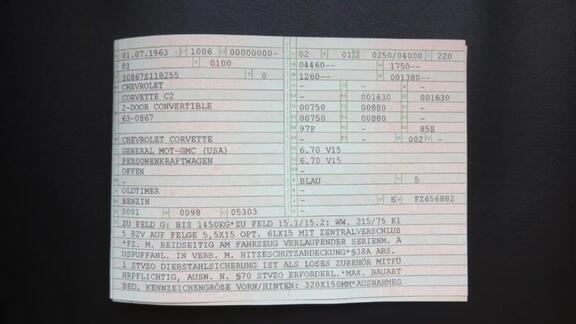 01.07.1963 1006 00000000-
01 0100
30867S118255 0
CHEVROLET
CORVETTE C2
2-DOOR CONVERTIBLE
63-0867
CHEVROLET CORVETTE
GENERAL MOT-GMC (USA)
PERSONENKRAFTWAGEN
OFFEN
-
OLDTIMER
BENZIN
0001 0098 05303
02 01 0250/04000 220
04460-- 1750--
1260-- 001380--
- - -
- 001630 001630
00750 00880 -
00750 00880 -
97P 85E
- - 002 -
6.70 V15
6.70 V15
-
BLAU 5
-
- E FZ656882
-
ZU FELD G: BIS 1450KG*ZU FELD 15.1/15.2: WW. 215/75 R1
5 82V AUF FELGE 5,5X15 OPT. 6LX15 MIT ZENTRALVERSCHLUß
*FZ. M. BEIDSEITIG AM FAHRZEUG VERLAUFENDER SERIENM. A
USPUFFANL. IN VERB. M. HITZESCHUTZABDECKUNG*§38A ABS.
1 STVZO DIEBSTAHLSICHERUNG IST ALS LOSES ZUBEHÖR MITFÜ
HRPFLICHTIG, AUSN. N. §70 STVZO ERFORDERL.*MAX. BAUART
BED. KENNZEICHENGRÖßE VORN/HINTEN: 320X150MM*AUSNAHMEG